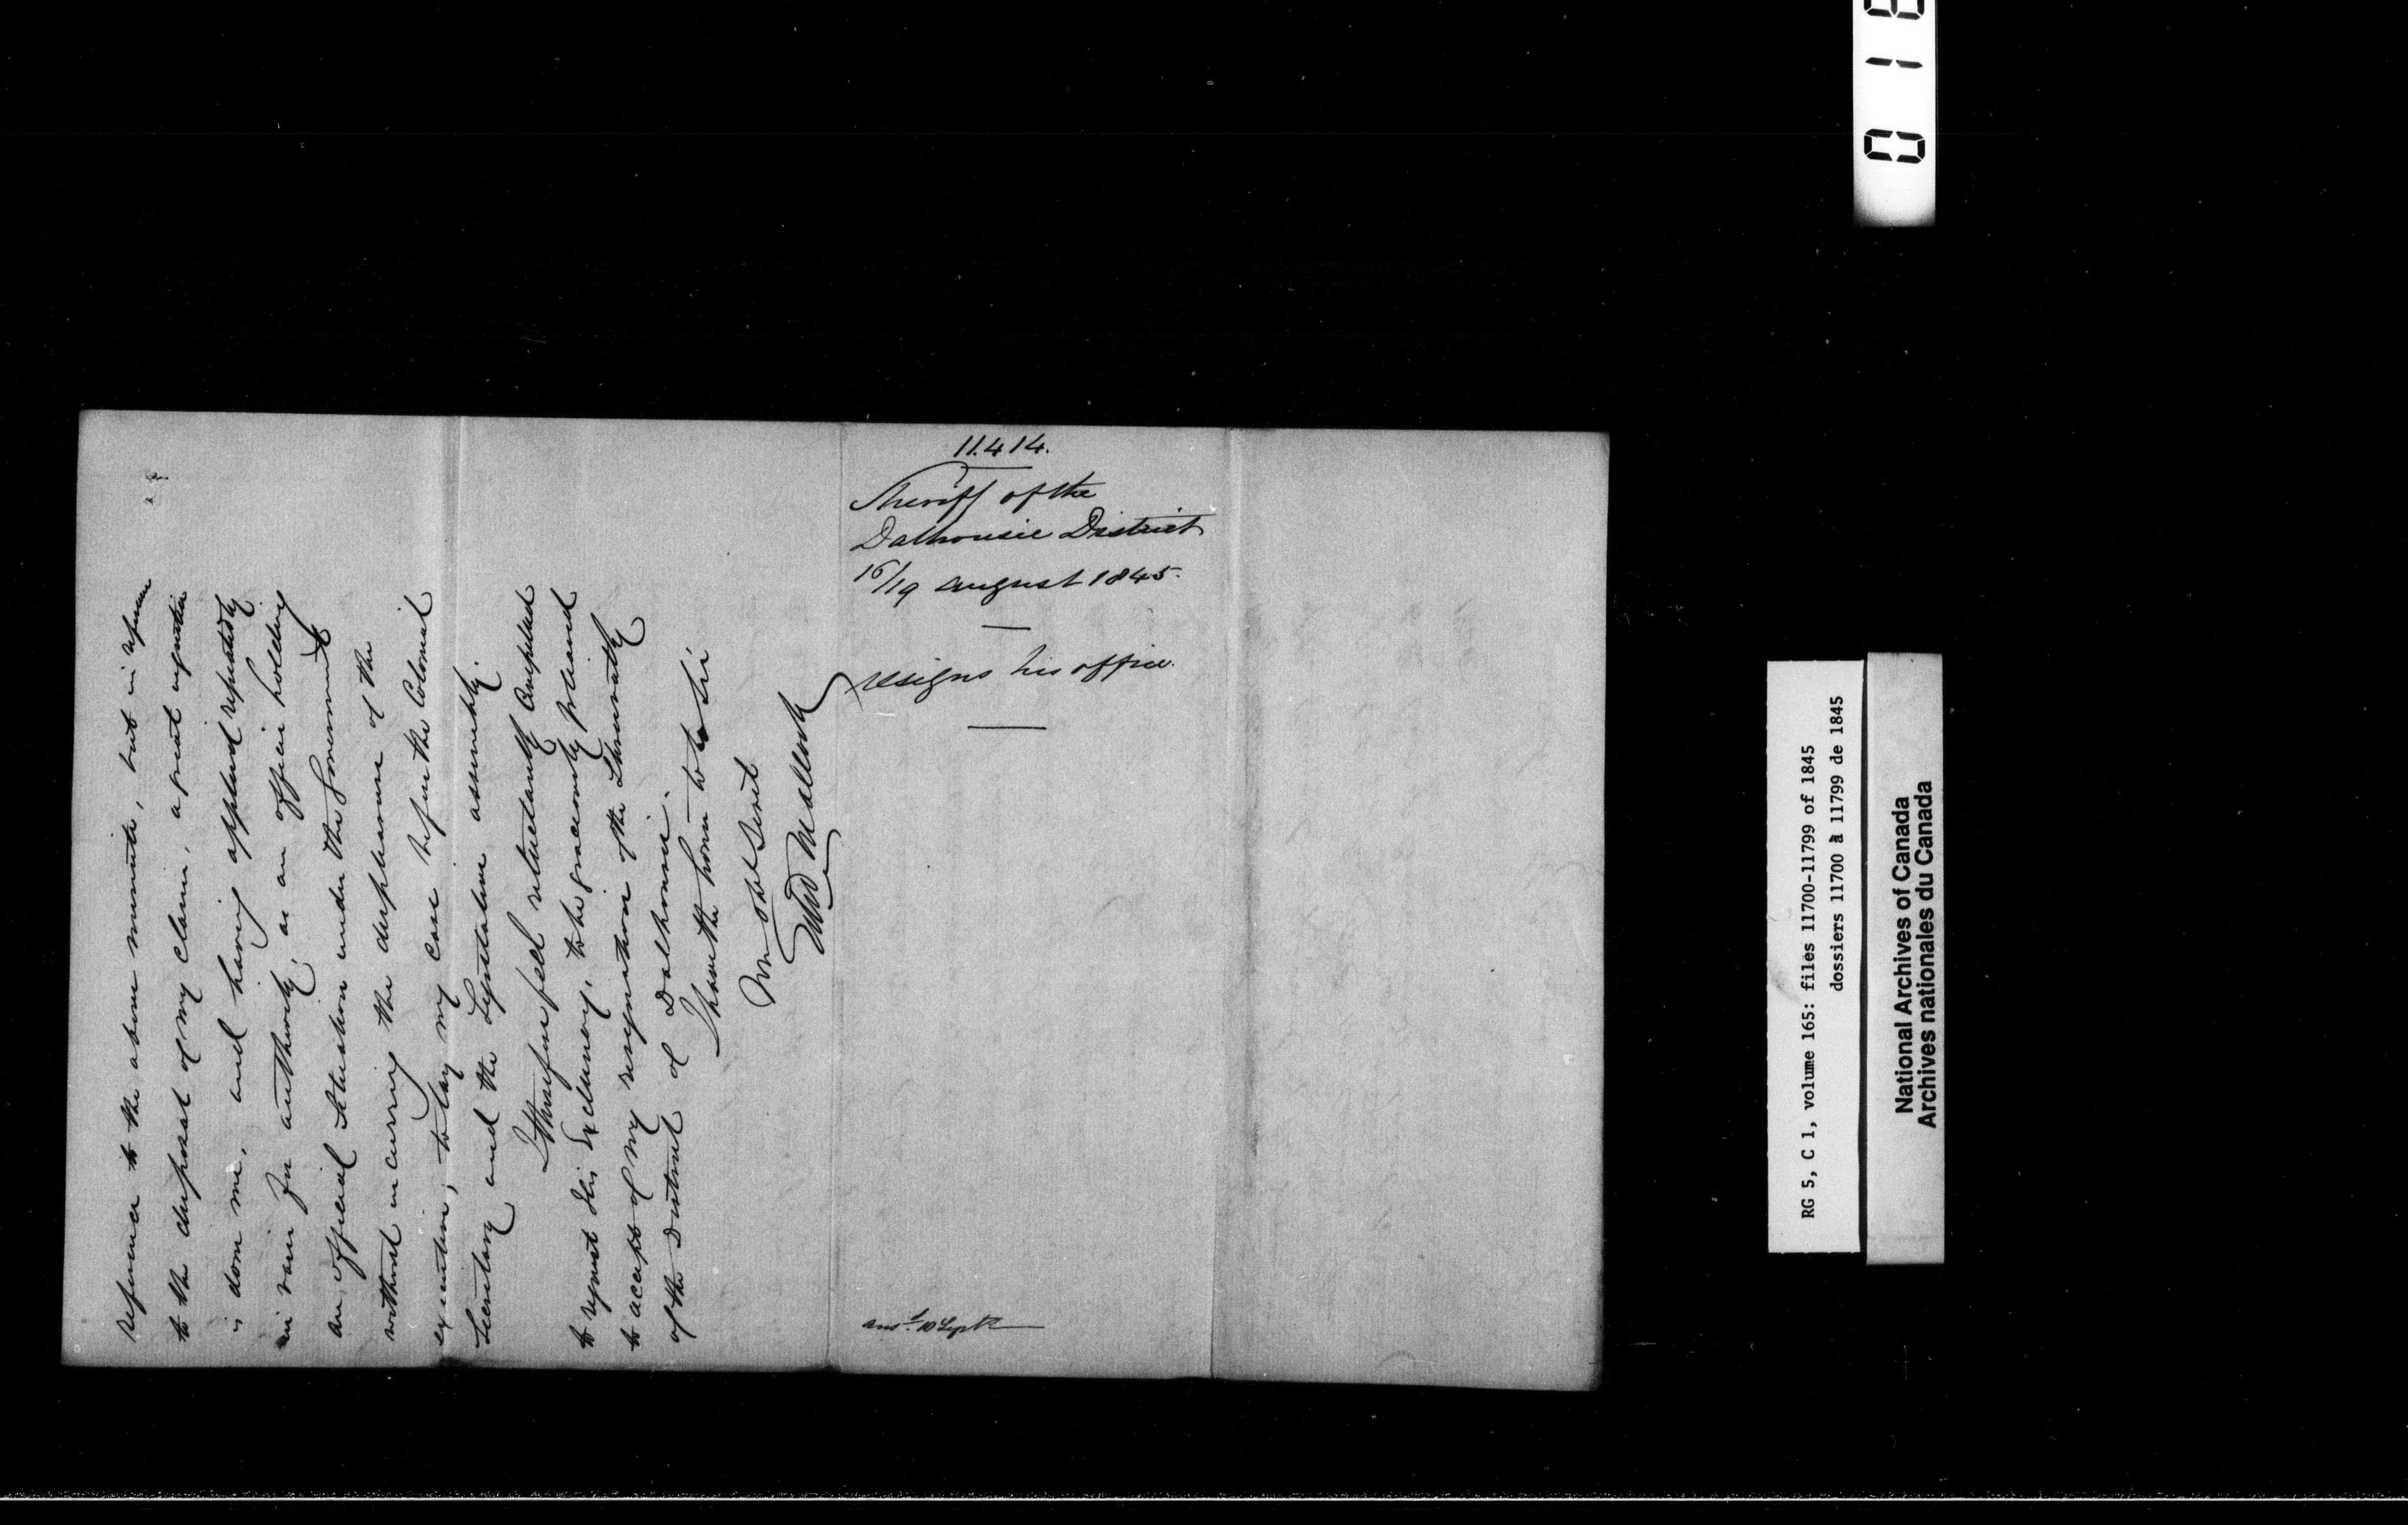 reference to the above minute, but in reference
to the disposal of my claim, a great injustice
is done me, and having applied repeatedly
in vain for authority, as an officer holding
an official situation under the Government
without incurring the displeasure of the
executive, to lay my case before the Colonial
Secretary and the Legislative assembly.
I therefore feel reluctantly Compelled
to request His Excellency, to be graciously pleased
to accept of my resignation of the Shrievalty
of the District of Dalhousie.
I have the honor to be Sir
Your Obt Servt
Malloch
11.414.
Sheriff of the
Dalhousie District
16/19 august 1845.
resigns his office.
ansd. 10 Sept
018
RG 5, C 1, volume 165: files 11700-11799 of 1845
dossiers 11700 à 11799 de 1845
National Archives of Canada
Archives nationales du Canada